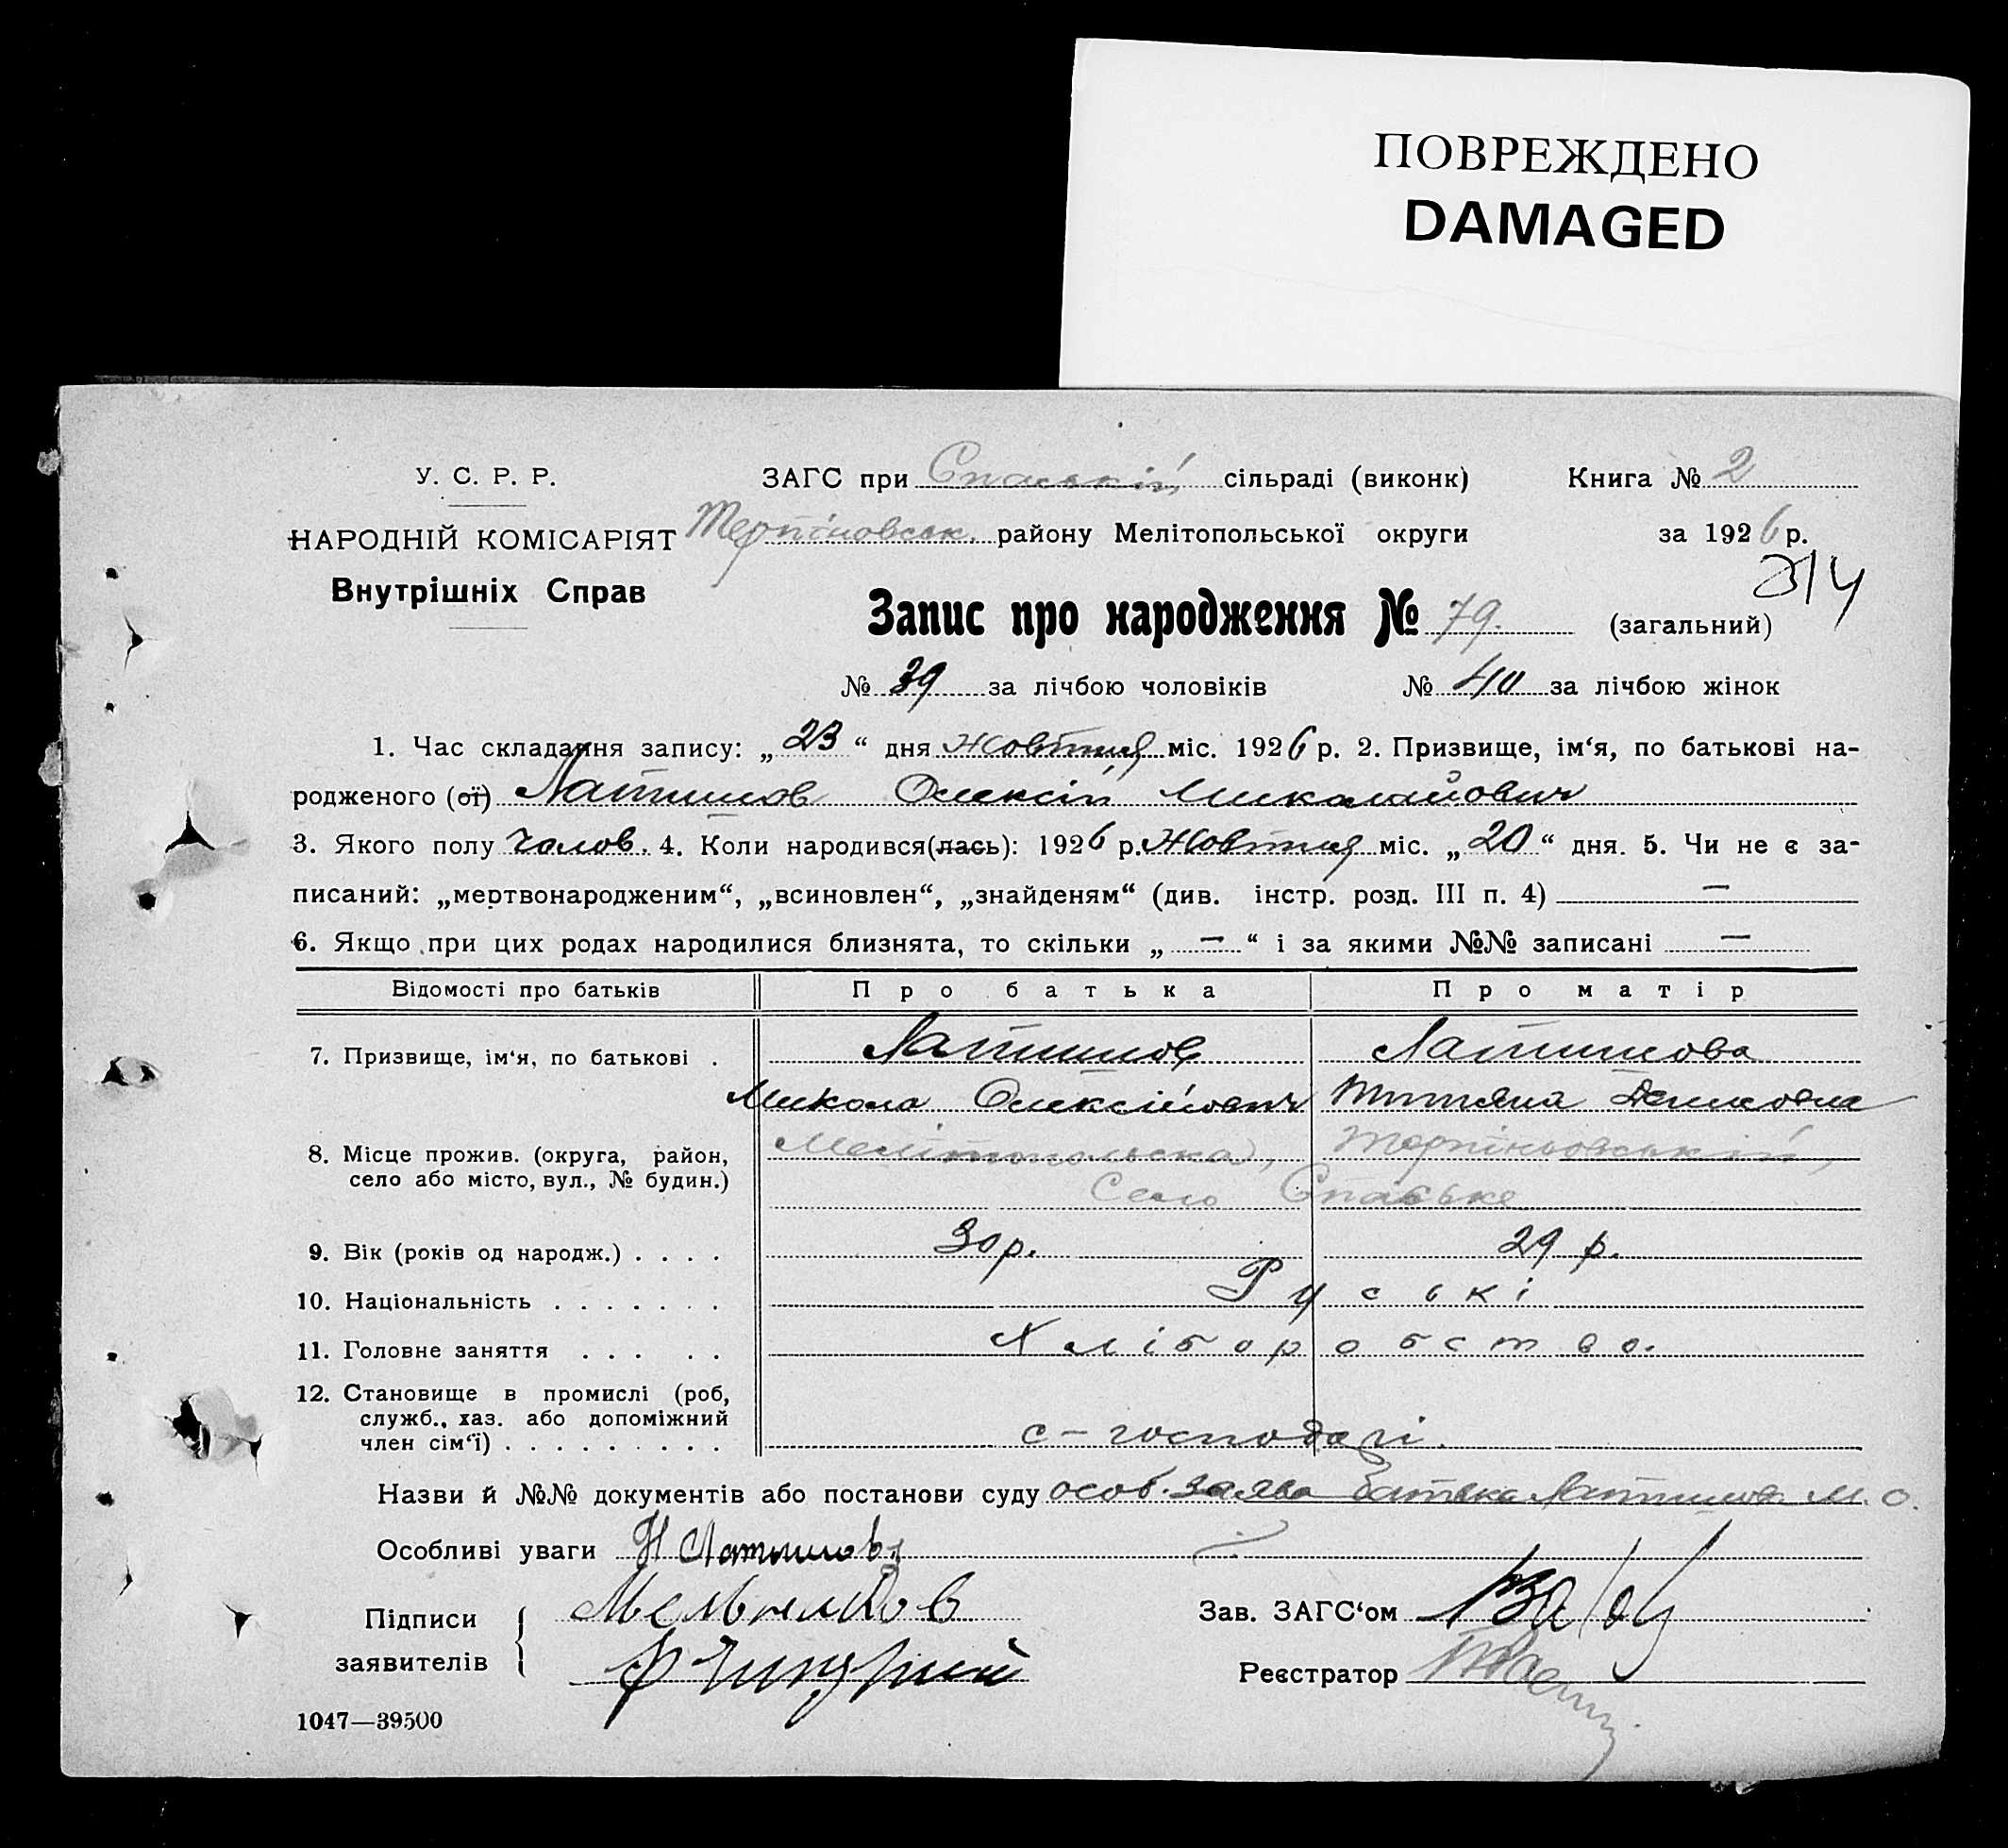 ПОВРЕЖДЕНО
DAMAGED
У. С. Р. Р.
НАРОДНІЙ КОМІСАРІЯТ
Внутрішніх Справ
ЗАГС при Спаській сільраді (виконк) Книга № 2
Терпіновськ. району Мелітопольської округи за 1926 р.
314
Запис про народження № 79. (загальний)
№ 39 за лічбою чоловіків № 40 за лічбою жінок
1. Час складання запису: „23“ дня Жовтня міс. 1926 р. 2. Призвище, ім‘я, по батькові на-
родженого (ої) Латишов Олексій Миколайович
3. Якого полу чолов. 4. Коли народився(лась): 1926 р. Жовтня міс. „20“ дня. 5. Чи не є за-
писаний: „мертвонародженим“, „всиновлен“, „знайденям“ (див. інстр. розд. III п. 4) —
6. Якщо при цих родах народилися близнята, то скільки „—“ і за якими №№ записані —
Відомості про батьків Про батька Про матір
7. Призвище, ім‘я, по батькові . Латишов Латишова
Микола Олексійович Титяна
8. Місце прожив. (округа, район, село або місто, вул., № будин.) Мелітопольска, Терпіньовський,
Село Спаське
9. Вік (років од народж.) . . . . 30 р. 29 р.
10. Національність . . . . . . . Руські
11. Головне заняття . . . . . Хліборобство.
12. Становище в промислі (роб, служб., хаз. або допоміжний член сім‘ї) . . . . . . . . . с-господарі.
Назви й №№ документів або постанови суду особ. заява батька Латишов М. О.
Особливі уваги Н Латышовъ
Підписи заявителів Мельников
Зав. ЗАГС‘ом
Реєстратор
1047—39500